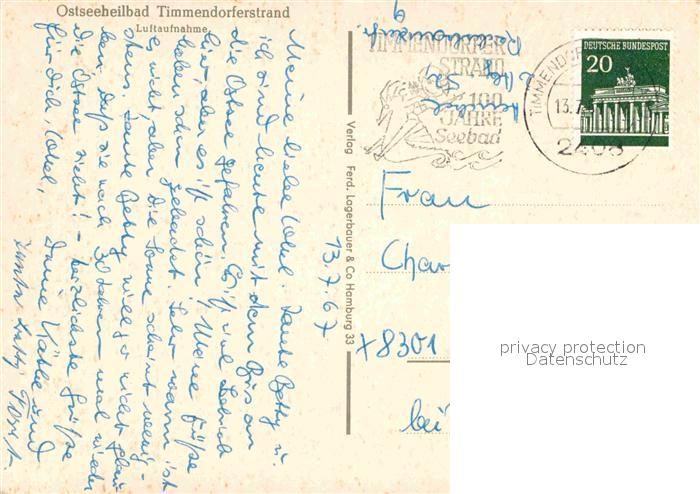 Ostseeheilbad Timmendorferstrand
Luftaufnahme
Meine liebe Tante Betty u.
ich sind heute mit dem Bus an
die Ostsee gefahren. Es ist viel Betrieb
hier aber es ist schön! Meine Füße
haben schon gebadet. Sehr warm ist
es nicht, aber die Sonne scheint wenig-
stens. Tante Betty will gar nicht glau-
ben daß sie nach 30 Jahren mal wieder
die Ostsee sieht! – herzlichste Grüße
für dich,
Deine Käthe und
Tante Betty
13.7.67
Verlag Ferd. Lagerbauer & Co Hamburg 33
TIMMENDORFER
STRAND
100
JAHRE
Seebad
TIMMENDORF
13.7.
2408
DEUTSCHE BUNDESPOST
20
Frau
Char
+8301
bei
privacy protection
Datenschutz